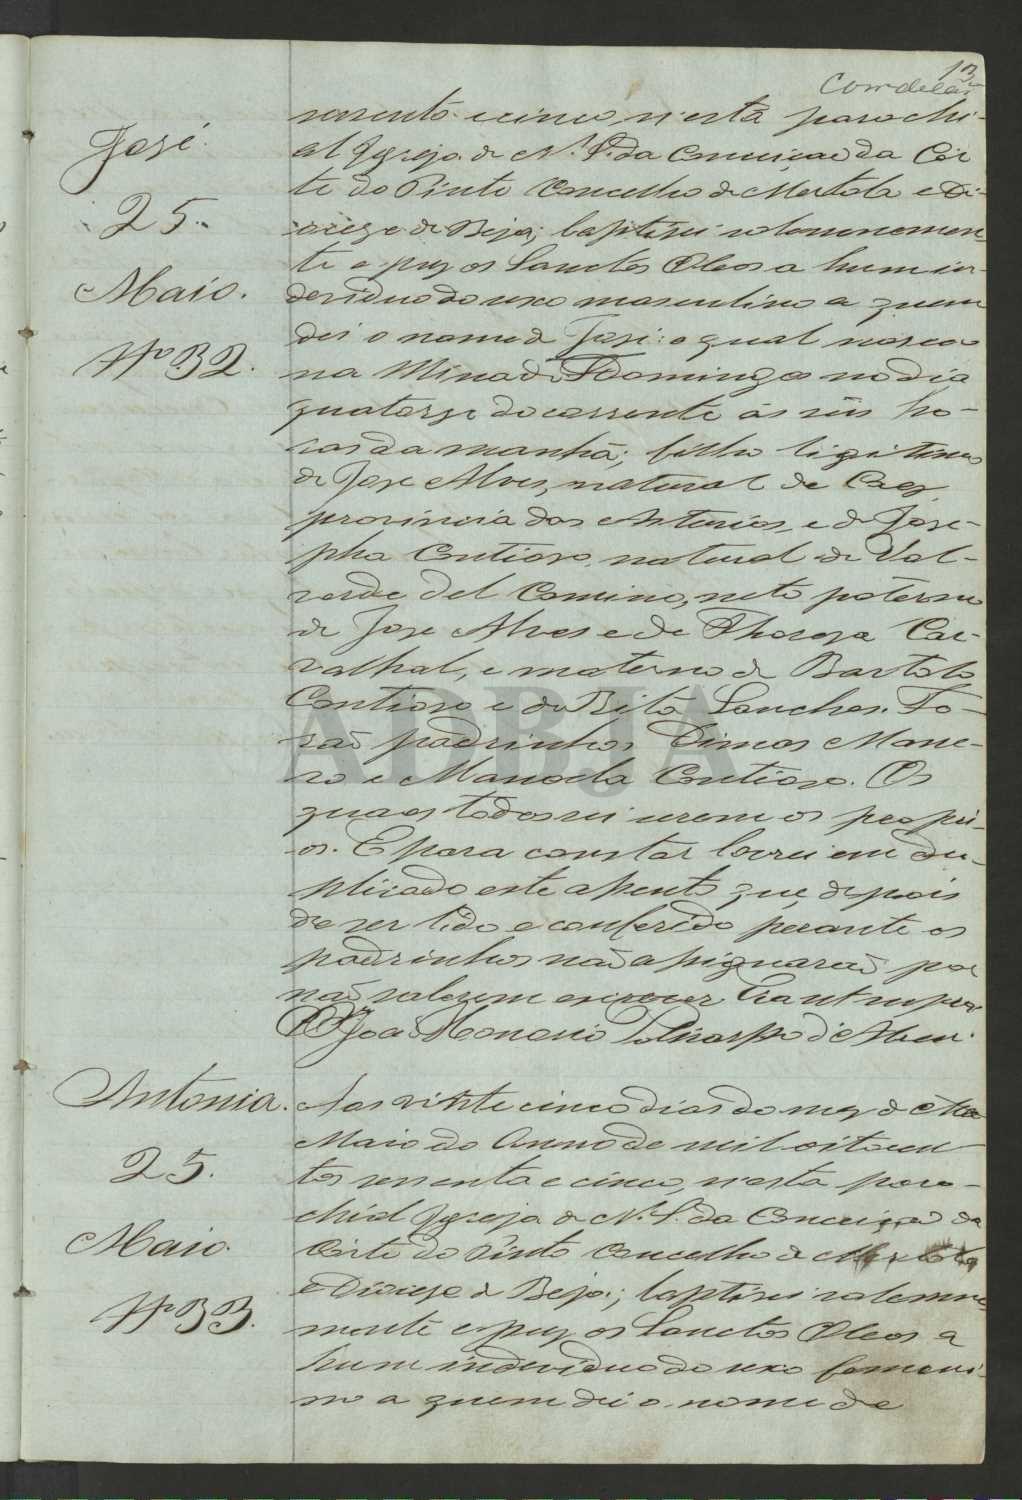 13
José.
25.
Maio.
Nº 32.
sesenta e cinco n'esta parochi-
al Igreja de N. S. da Conceiçao da Cor
te do Pinto Concelho de Mertola e Di-
oceze de Beja; baptisei solemnemen-
te e puz os Sanctos Oleos a hum in-
deviduo do sexo masculino a quem
dei o nome de José: o qual nasceo
na Mina de S. Domingos no dia
quatorze do corrente ás seis ho-
ras da manhã; filho ligitimo
de Jose Alves, natural de
provincia das Asturias, e de Jose-
pha Contioso natural de Val-
verde Del Camino, neto paterno
de Jose Alves e de Thereza Car-
valhal, e materno de Bartolo
Contioso e de Rita Sanches. Fo-
raõ padrinhos Dimas
e Manoela Contioso. Os
quaes todos sei serem os propri-
os. E para constar lavrei em du-
plicado este assento que, depois
de ser lido e conferido perante os
padrinhos naõ assignaraõ por
naõ saberem escrever Era ut supra
Joaõ Policarpo d'Abreu.
ADBJA
Antonia.
25.
Maio.
Nº 33.
Aos vinte cinco dias do mez de
Maio do Anno de mil oitocen-
tos sessenta e cinco, n'esta paro-
chial Igreja de N. S. da Conceiçao da
Corte do Pinto Concelho de Mertola
e Dioceze de Beja; baptisei solemne
mente e puz os Sanctos Oleos a
hum indeviduo do sexo femeni-
no a quem dei o nome de